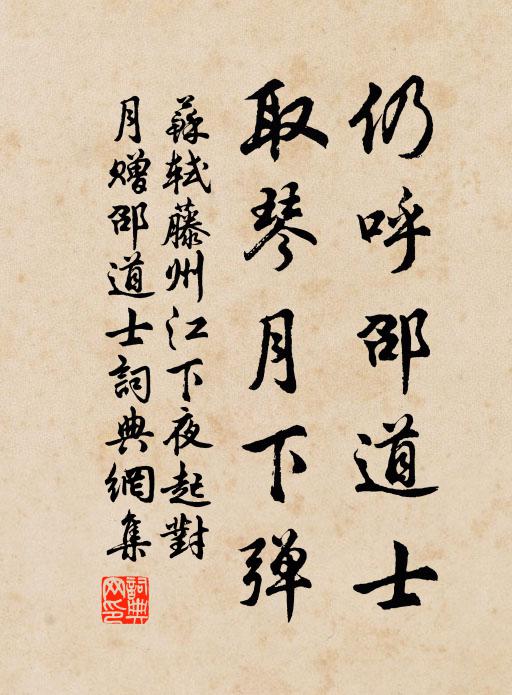 仍呼邵道士
取琴月下弹
蘇軾藤州江下夜起對
月赠邵道士詞典網集
詞典
网印